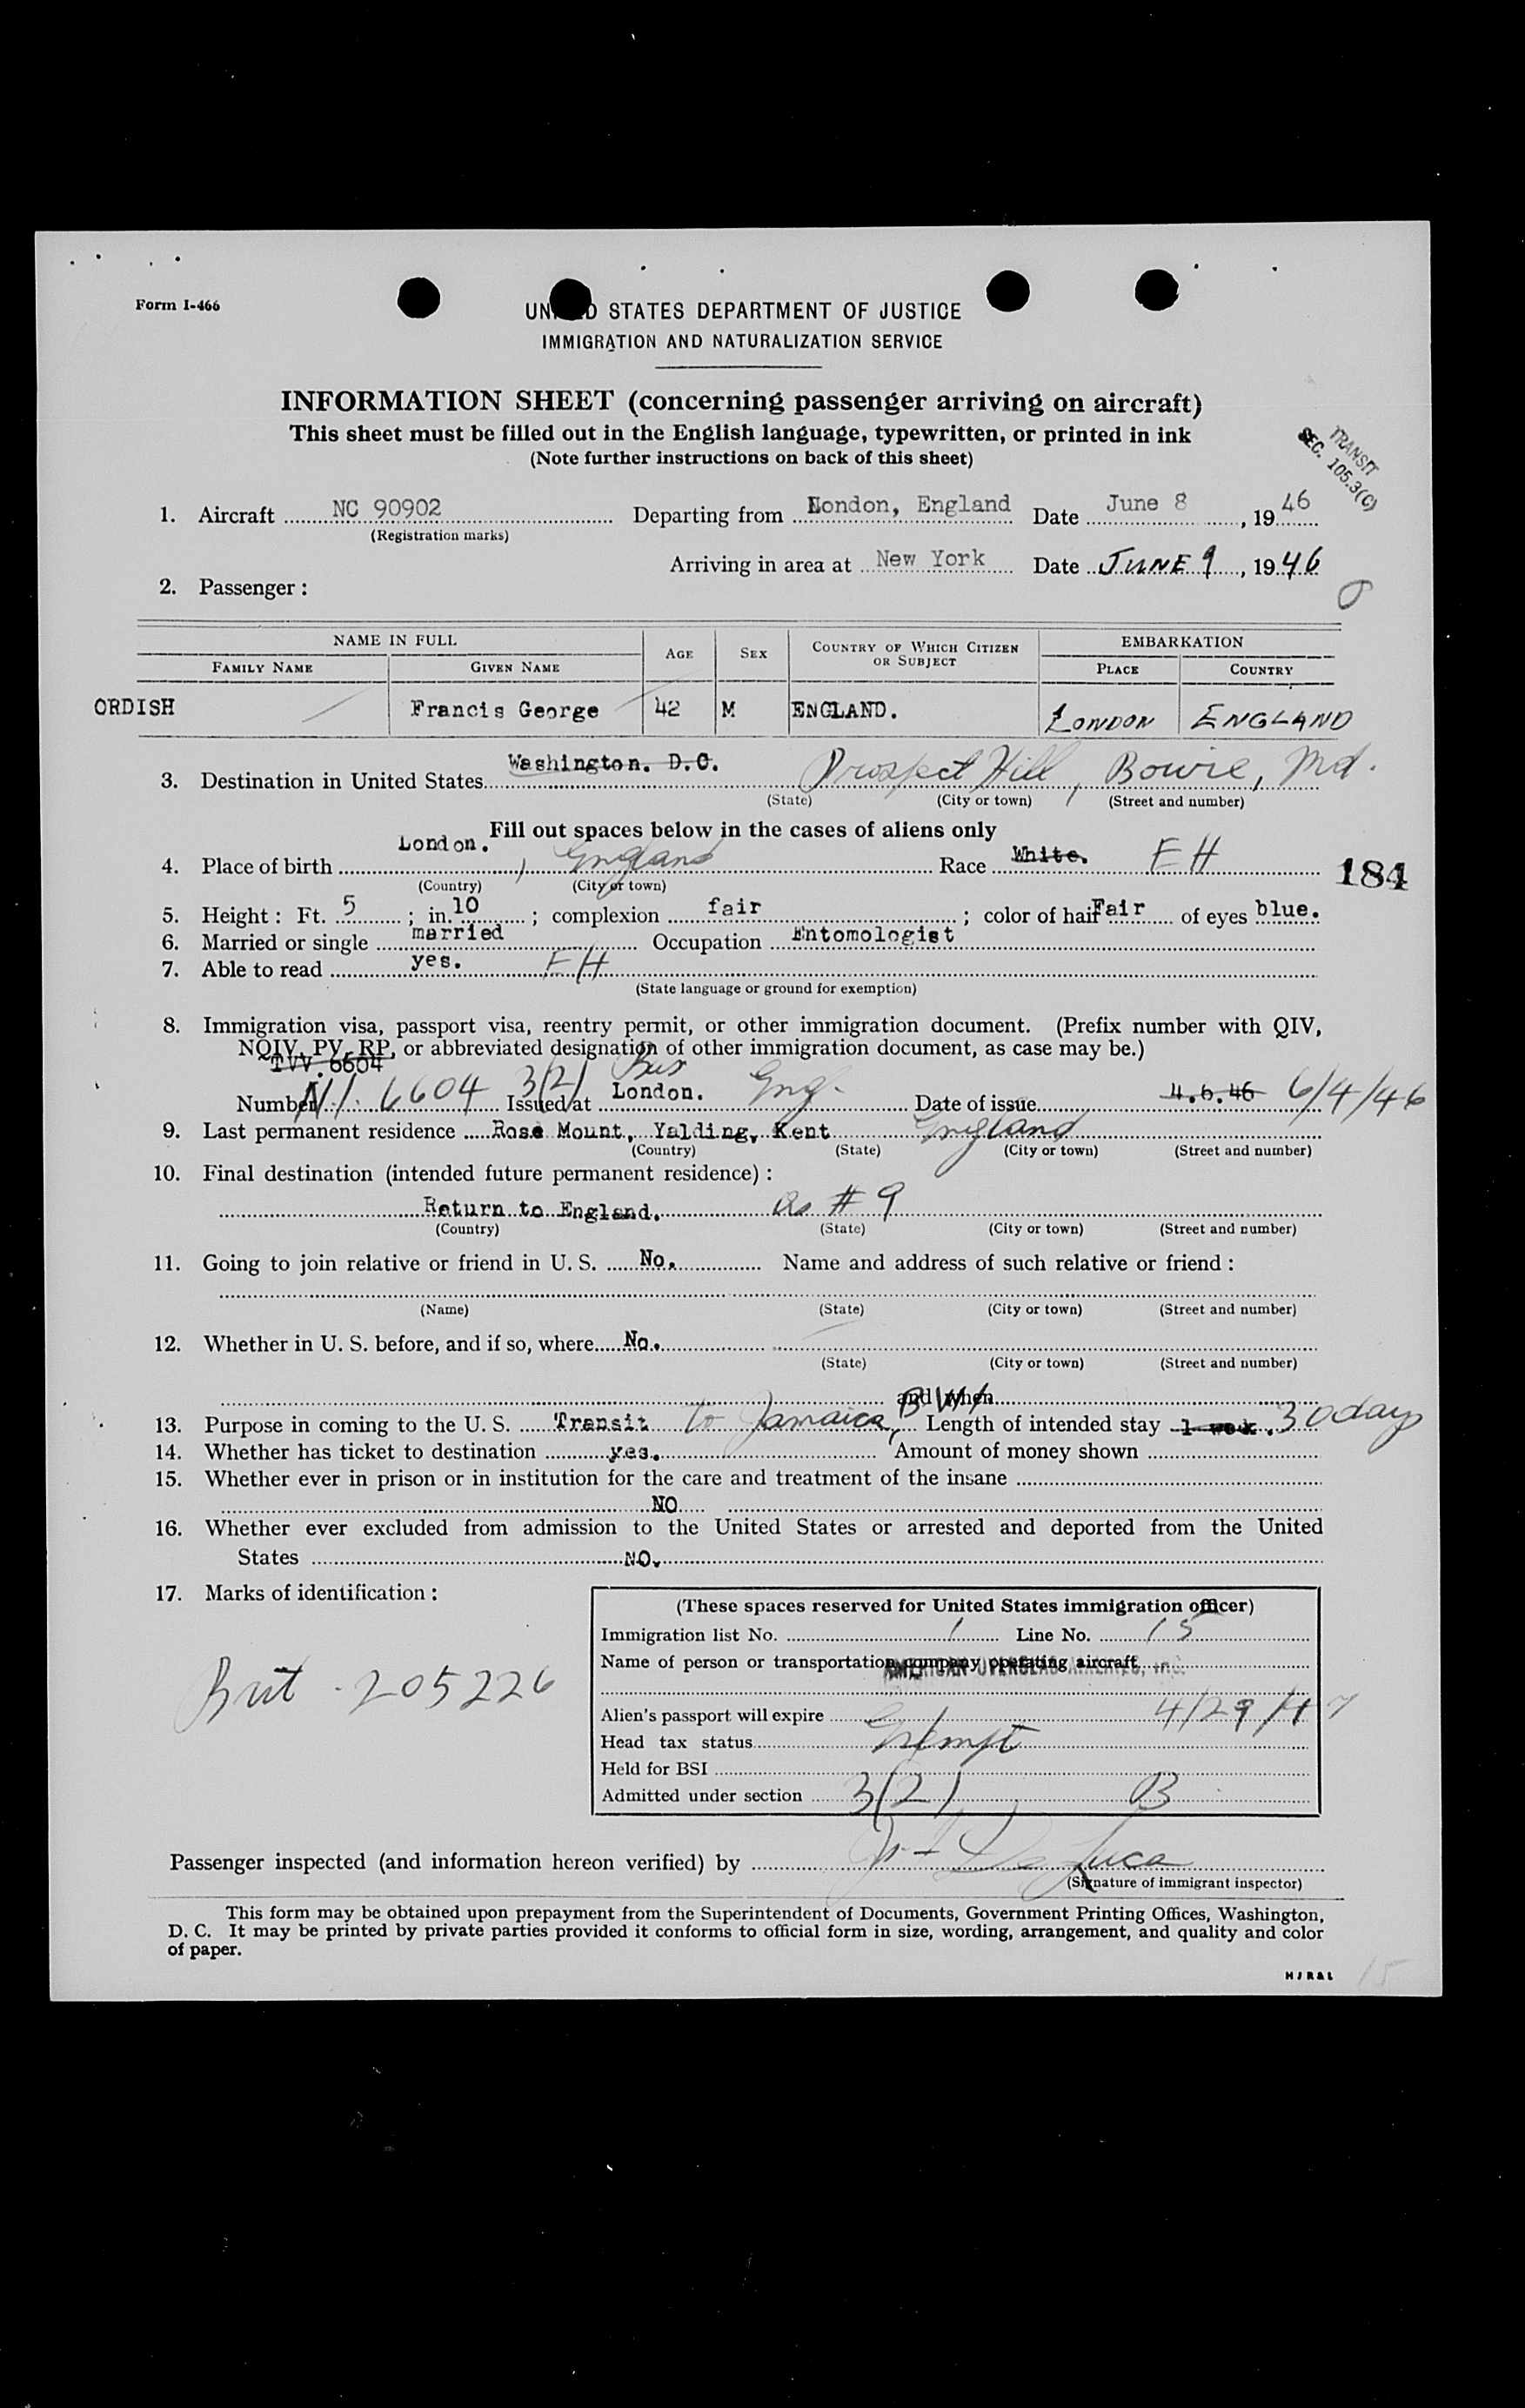 Form I-466
UNITED STATES DEPARTMENT OF JUSTICE
IMMIGRATION AND NATURALIZATION SERVICE
INFORMATION SHEET (concerning passenger arriving on aircraft)
This sheet must be filled out in the English language, typewritten, or printed in ink
(Note further instructions on back of this sheet)
TRANSIT
SEC. 105.3(C)
1. Aircraft NC 90902 Departing from London, England Date June 8, 1946
(Registration marks)
Arriving in area at New York Date JUNE 9, 1946
2. Passenger:
NAME IN FULL AGE SEX COUNTRY OF WHICH CITIZEN OR SUBJECT EMBARKATION
FAMILY NAME GIVEN NAME PLACE COUNTRY
ORDISH Francis George 42 M ENGLAND. LONDON ENGLAND
3. Destination in United States Washington. D.C. Prospect Hill, Bowie, Md.
(State) (City or town) (Street and number)
Fill out spaces below in the cases of aliens only
4. Place of birth London., England Race White. EH
184
(Country) (City or town)
5. Height: Ft. 5; in. 10; complexion fair; color of hair Fair of eyes blue.
6. Married or single married Occupation Entomologist
7. Able to read yes. EH
(State language or ground for exemption)
8. Immigration visa, passport visa, reentry permit, or other immigration document. (Prefix number with QIV,
NQIV, PV, RP, or abbreviated designation of other immigration document, as case may be.)
TVV. 6604
Number 6604 3(2) Issued at London. Eng. Date of issue 4.6.46 6/4/46
9. Last permanent residence Rose Mount, Yalding, Kent England
(Country) (State) (City or town) (Street and number)
10. Final destination (intended future permanent residence):
Return to England. as # 9
(Country) (State) (City or town) (Street and number)
11. Going to join relative or friend in U. S. No. Name and address of such relative or friend:
(Name) (State) (City or town) (Street and number)
12. Whether in U. S. before, and if so, where No.
(State) (City or town) (Street and number)
and when
13. Purpose in coming to the U. S. Transit to Jamaica, BWI Length of intended stay 1 week. 30 days
14. Whether has ticket to destination yes. Amount of money shown
15. Whether ever in prison or in institution for the care and treatment of the insane
NO
16. Whether ever excluded from admission to the United States or arrested and deported from the United
States NO.
17. Marks of identification:
Brit - 205226
(These spaces reserved for United States immigration officer)
Immigration list No. 1 Line No. 15
Name of person or transportation company operating aircraft AMERICAN OVERSEAS AIRLINES, INC.
Alien's passport will expire 4/29/47
Head tax status Exempt
Held for BSI
Admitted under section 3(2) B
Passenger inspected (and information hereon verified) by De Luca
(Signature of immigrant inspector)
This form may be obtained upon prepayment from the Superintendent of Documents, Government Printing Offices, Washington,
D. C. It may be printed by private parties provided it conforms to official form in size, wording, arrangement, and quality and color
of paper.
H J R & L
15